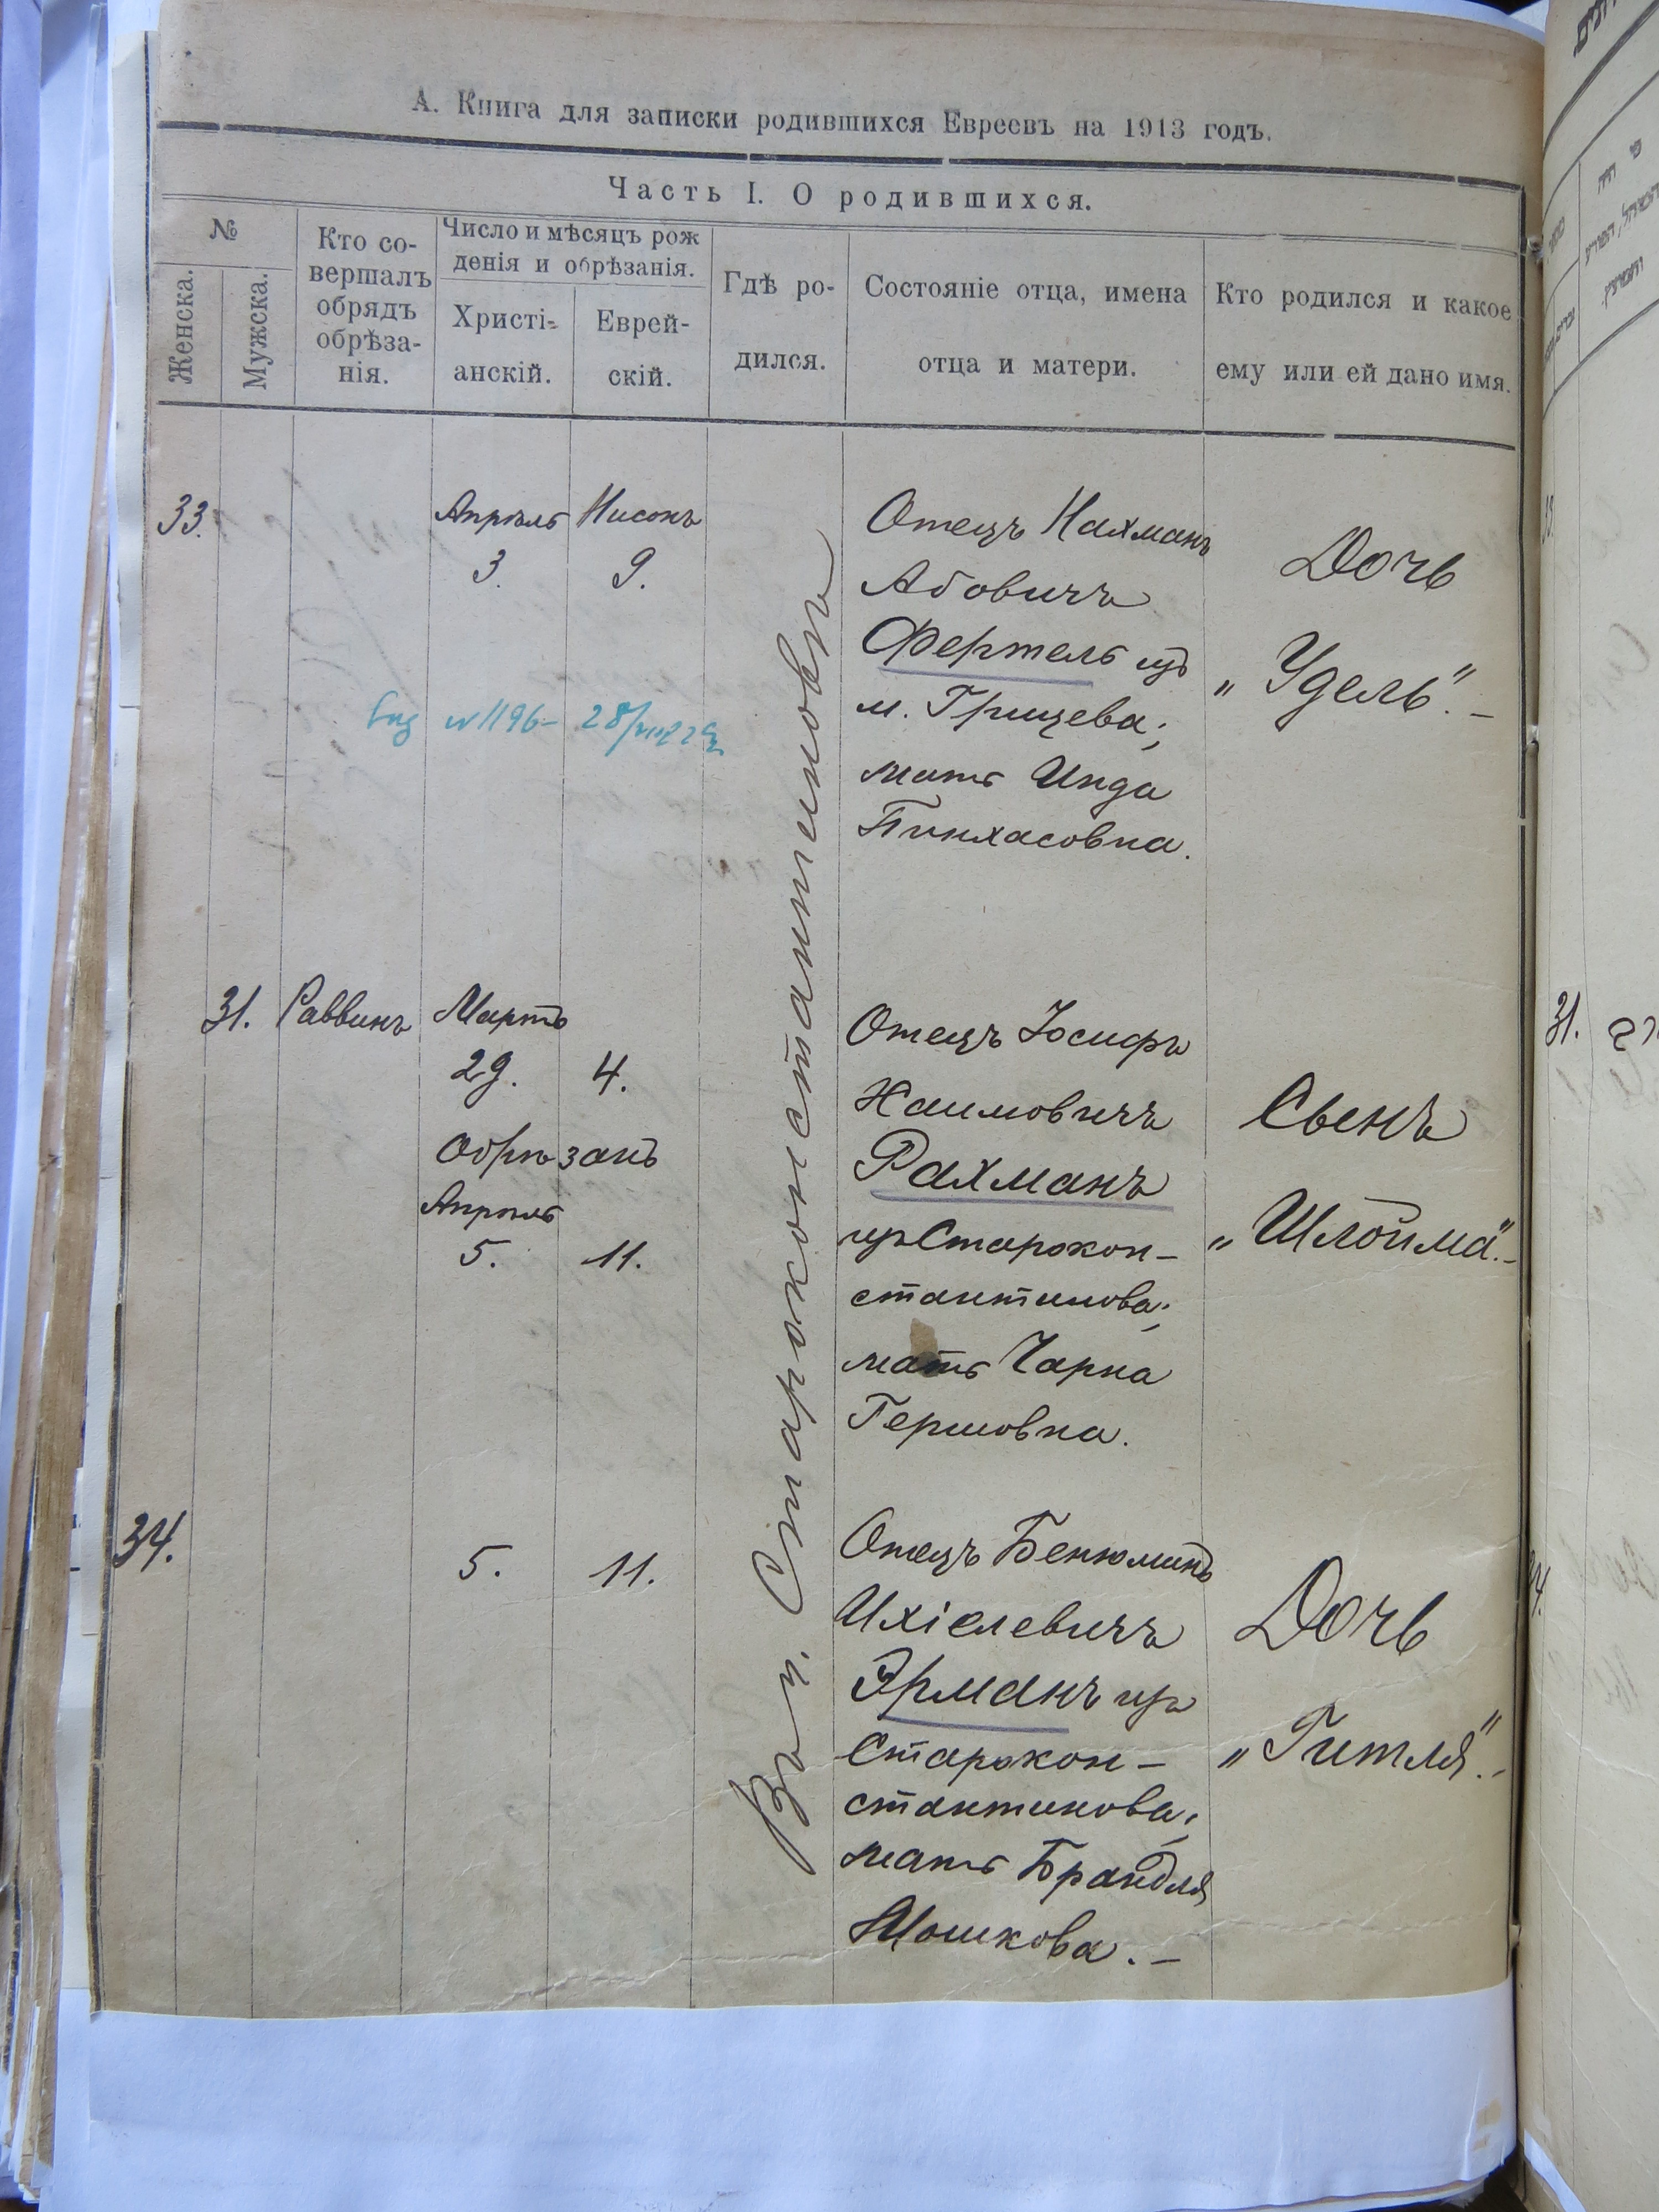 А. Книга для записки родившихся Евреевъ на 1913 годъ.
Часть I. О родившихся.
№
Женска.
Мужска.
Кто со-
вершалъ
обрядъ
обрѣза-
нія.
Число и мѣсяцъ рож
денія и обрѣзанія.
Христі-
анскій.
Еврей-
скій.
Гдѣ ро-
дился.
Состояніе отца, имена
отца и матери.
Кто родился и какое
ему или ей дано имя.
33.
Апрѣль Нисонъ
3. 9.
№ 1196- 28/
Въ г. Староконстантиновѣ
Отецъ Нахманъ
Абовичъ
Фертель изъ
м. Грицева;
мать Инда
Пинхасовна.
Дочь
„Удель".-
31. Раввинъ
Мартъ
29. 4.
Обрѣзанъ
Апрѣль
5. 11.
Отецъ Іосифъ
Хаимовичъ
Рахманъ
изъ Старокон-
стантинова;
мать Чарна
Гершовна.
Сынъ
„Шлойма".-
34.
5. 11.
Отецъ Бенюминъ
Ихіелевичъ
Эрманъ изъ
Старокон-
стантинова;
мать Брандля
Мошкова.-
Дочь
„Гитля".-
31.